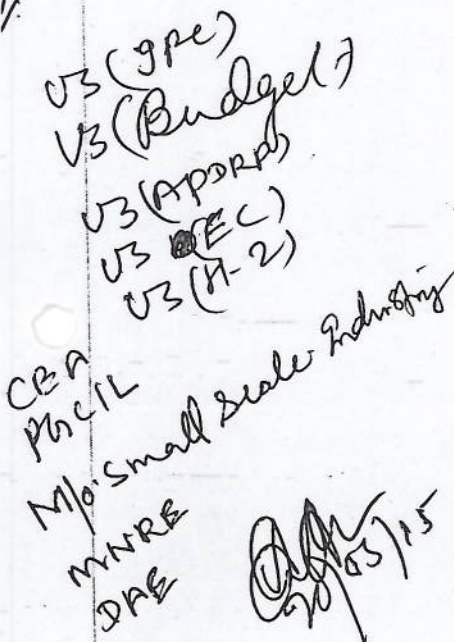 US (IPC)
US (Budget)
US (APDRP)
US (EC)
US (H-2)
CEA
PGCIL
M/o Small Scale Industry
MNRE
DAE
20/05/15